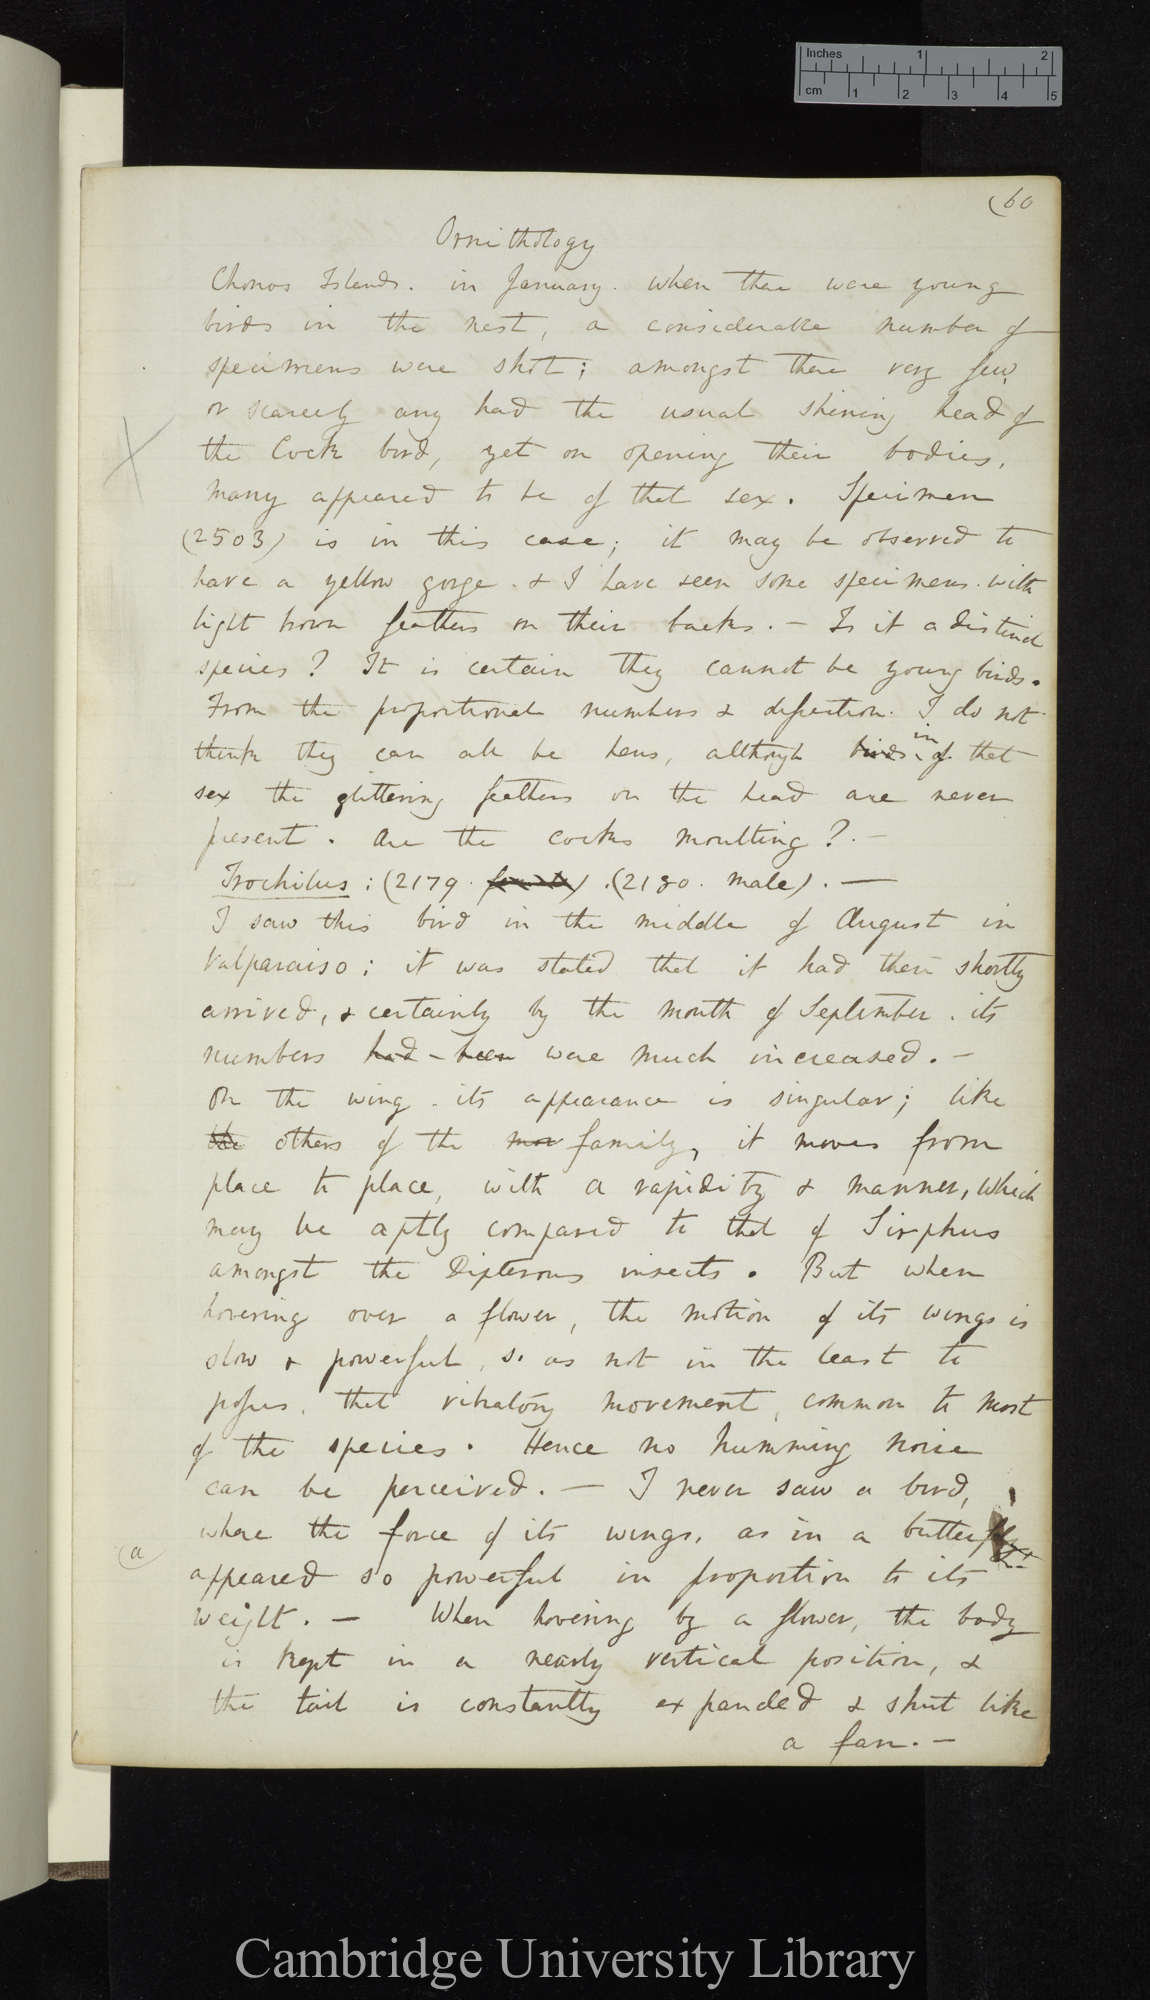 Inches 1 2
cm 1 2 3 4 5
(60
Ornithology
Chonos Islands. in January. when there were young
birds in the nest, a considerable number of
specimens were shot; amongst these very few,
or scarcely any had the usual shining head of
the Cock bird, yet on opening their bodies,
many appeared to be of that sex. Specimen
(2503) is in this case; it may be observed to
have a yellow gorge. & I have seen some specimens with
light brown feathers on their backs. — Is it a distinct
species? It is certain they cannot be young birds.
From the proportional numbers & dissection. I do not
think they can all be hens, although birds in of that
sex the glittering feathers on the head are never
present. Are the cocks moulting? —
Trochilus: (2179. female) .(2180. male). —
I saw this bird in the middle of August in
Valparaiso; it was stated that it had then shortly
arrived, & certainly by the month of September. its
numbers had been were much increased. —
On the wing. its appearance is singular; like
the others of the family, it moves from
place to place, with a rapidity & manner, which
may be aptly compared to that of Sirphus
amongst the Dipterous insects. But when
hovering over a flower, the motion of its wings is
slow & powerful, so as not in the least to
posses. that vibratory movement, common to most
of the species. Hence no humming noise
can be perceived. — I never saw a bird,
where the force of its wings, as in a butterfly
(a)
appeared so powerful in proportion to its
weight. — When hovering by a flower, the body
is kept in a nearly vertical position, &
the tail is constantly expanded & shut like
a fan. —
Cambridge University Library